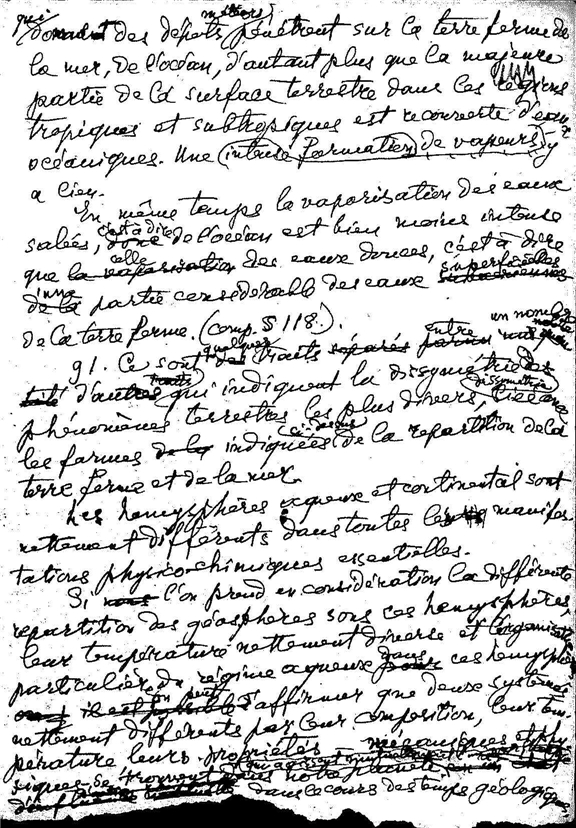 qui donnent des dépôts pénètrent sur la terre ferme de
la mer, de l'océan, d'autant plus que la majeure
partie de la surface terrestre dans les régions
tropiques et subtropiques est recouverte d'eaux
océaniques. Une intense formation de vapeurs y
a lieu.
En même temps la vaporisation des eaux
salées, c'est à dire de l'océan est bien moins intense
que celle des eaux douces, c'est à dire
d'une partie considérable des eaux superficielles
de la terre ferme. (comp. § 118.).
91. Ce sont quelques traits entre un nombre
d'autres traits qui indiquent la dissymétrie des
phénomènes terrestres les plus divers, dissymétrie liée avec
les formes indiquées ci-dessus de la repartition de la
terre ferme et de la mer.
Les hemysphères aqueux et continental sont
nettement différents dans toutes les manifes-
tations physico-chimiques essentielles.
Si l'on prend en considération la différente
repartition des géosphères sous ces hemysphères,
leur température nettement diverse et l'organisation
particulière du régime aqueux dans ces hemysphères
on peut s'affirmer que deux systèmes
nettement différents par leur composition, leur tem-
pérature leurs propriétés mécaniques et phy-
siques se trouvent dans notre planète
dans le cours des temps géologiques